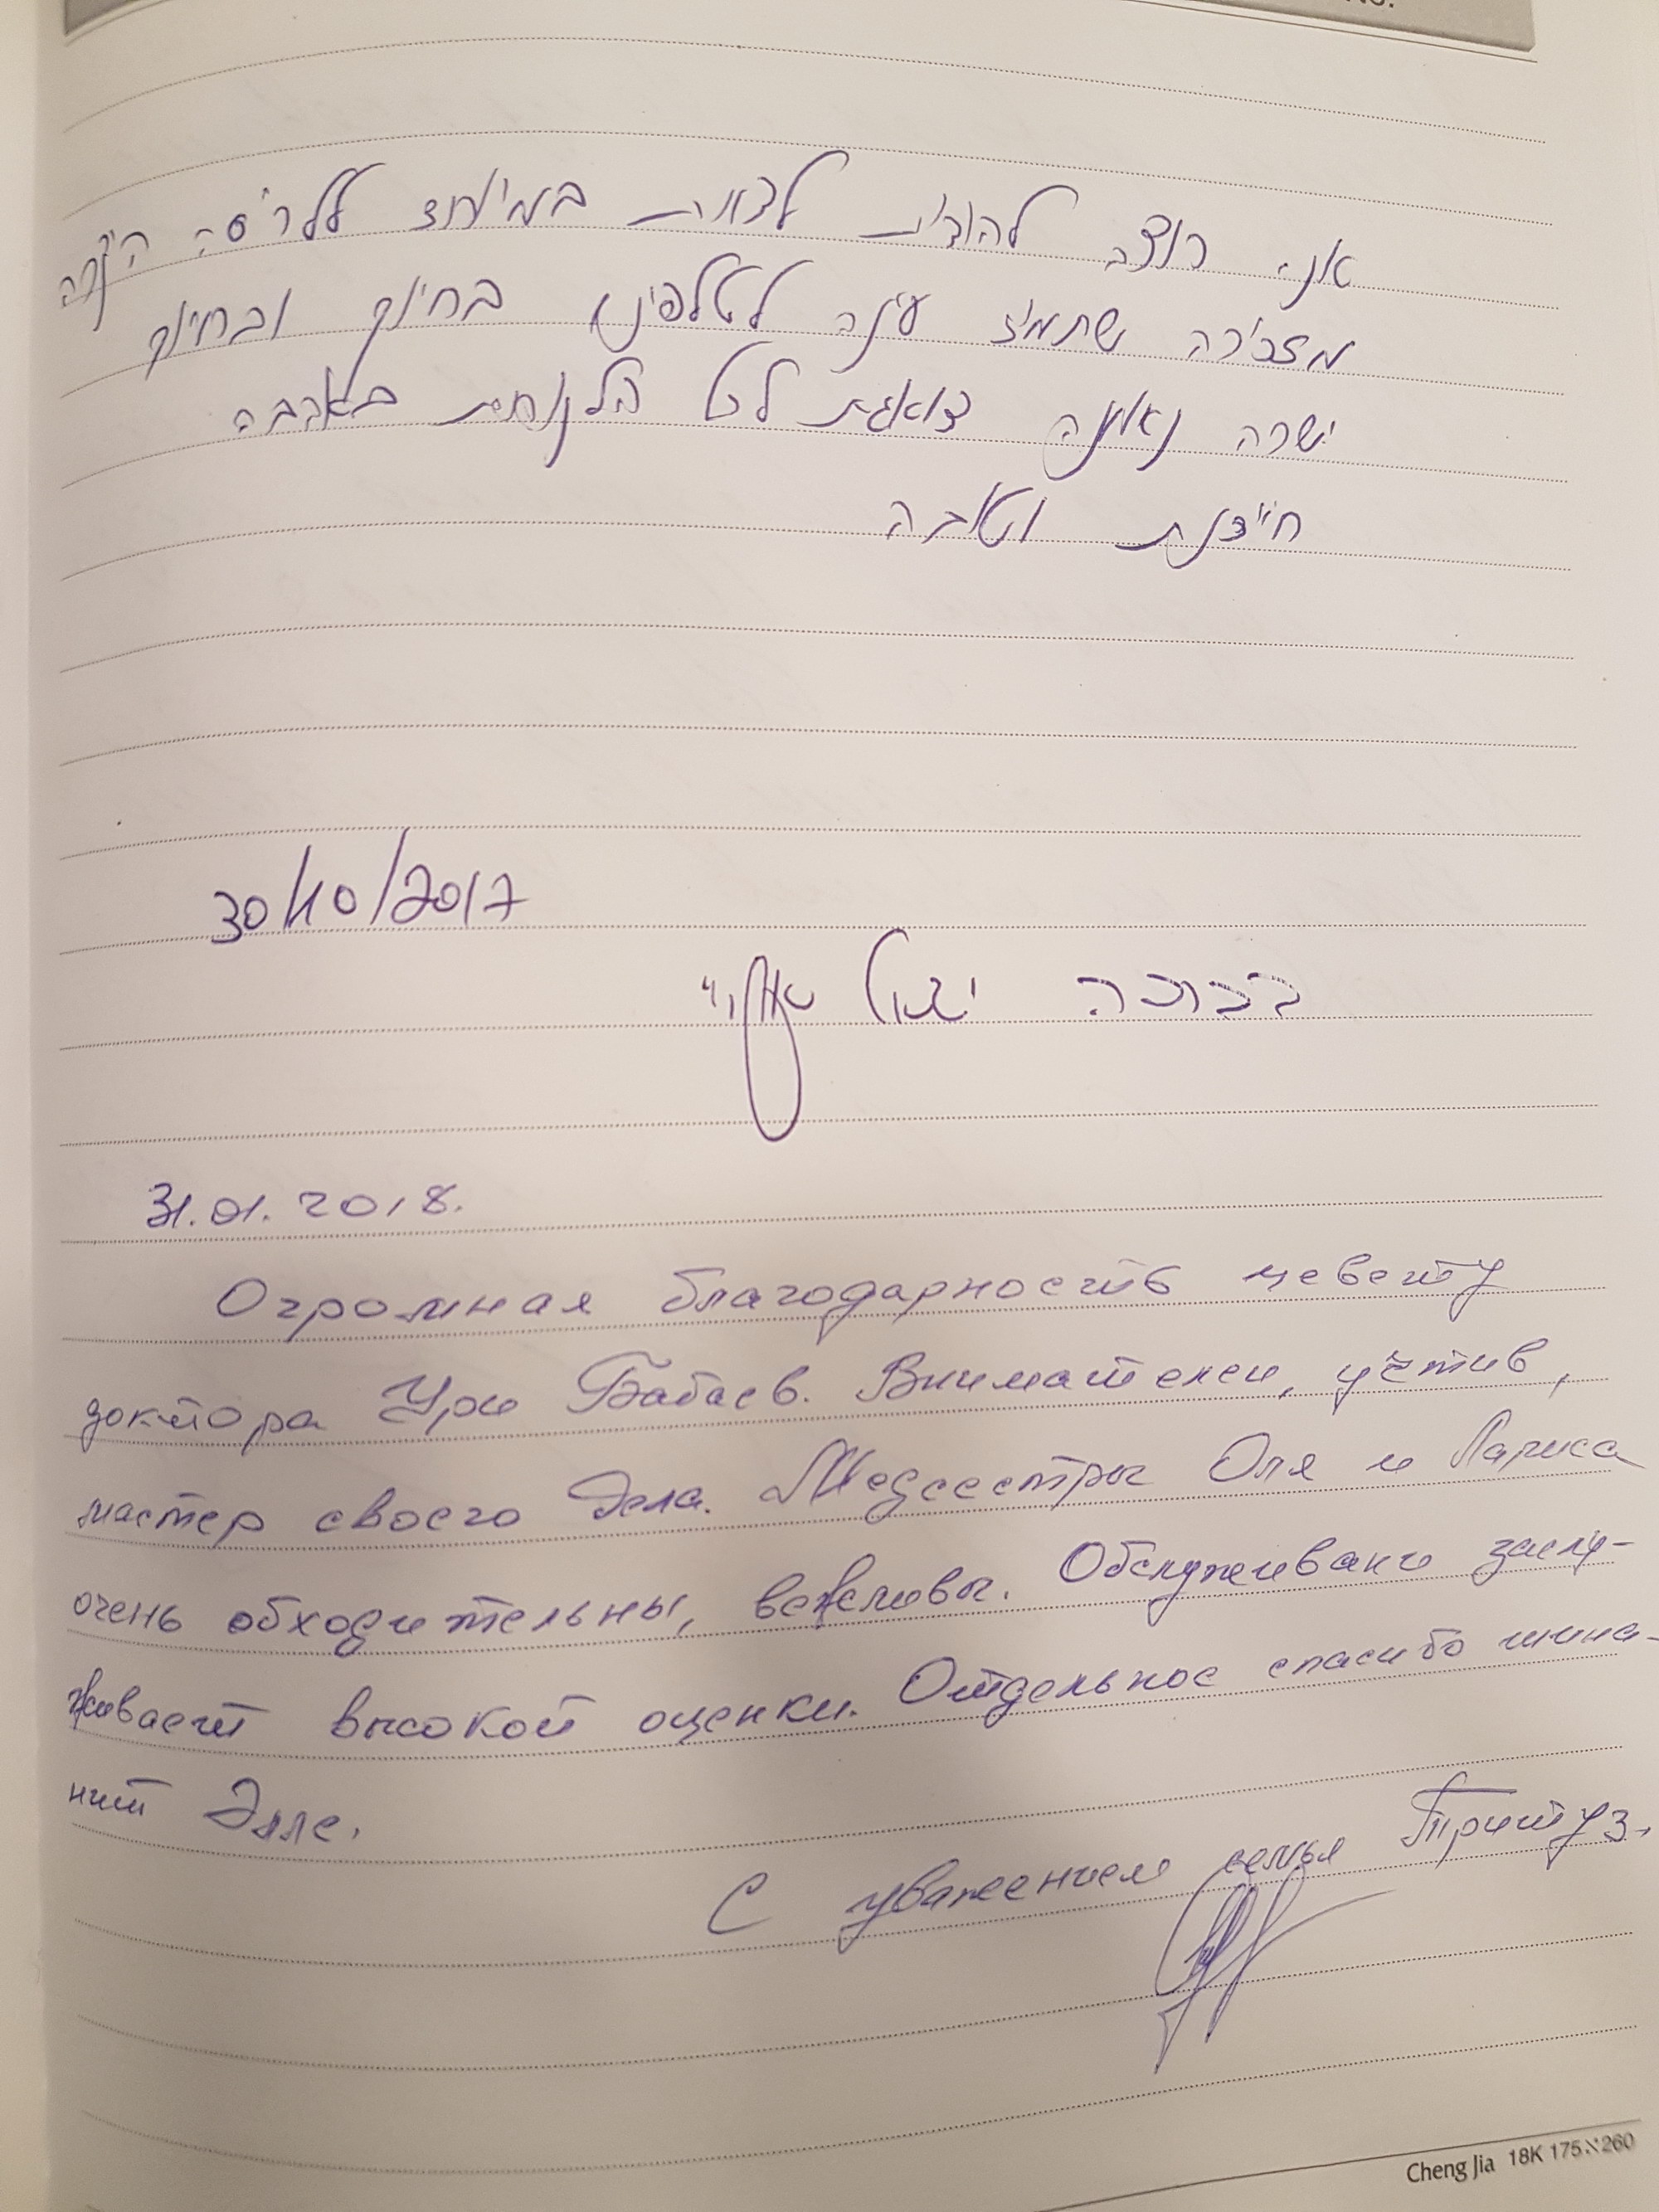 No.
אני רוצה להודות לצוות במיוחד ללריסה היקרה
מזכירה שתמיד עונה לטלפונים בחיוך ובחיוך
ישרה נאמנה דואגת לכל הלקוחות באהבה
חייכנית וטובה
30/10/2017
ברוכה יגאל
31.01.2018.
Огромная благодарность цевету
доктора Ури Бабаев. Внимателен, учтив,
мастер своего дела. Медсестры Оля и Лариса
очень обходительны, вежливы. Обслуживани заслу-
живает высокой оценки. Отдельное спасибо шина-
ният Элле.
С уважением семья Притуз.
Cheng Jia 18K 175×260